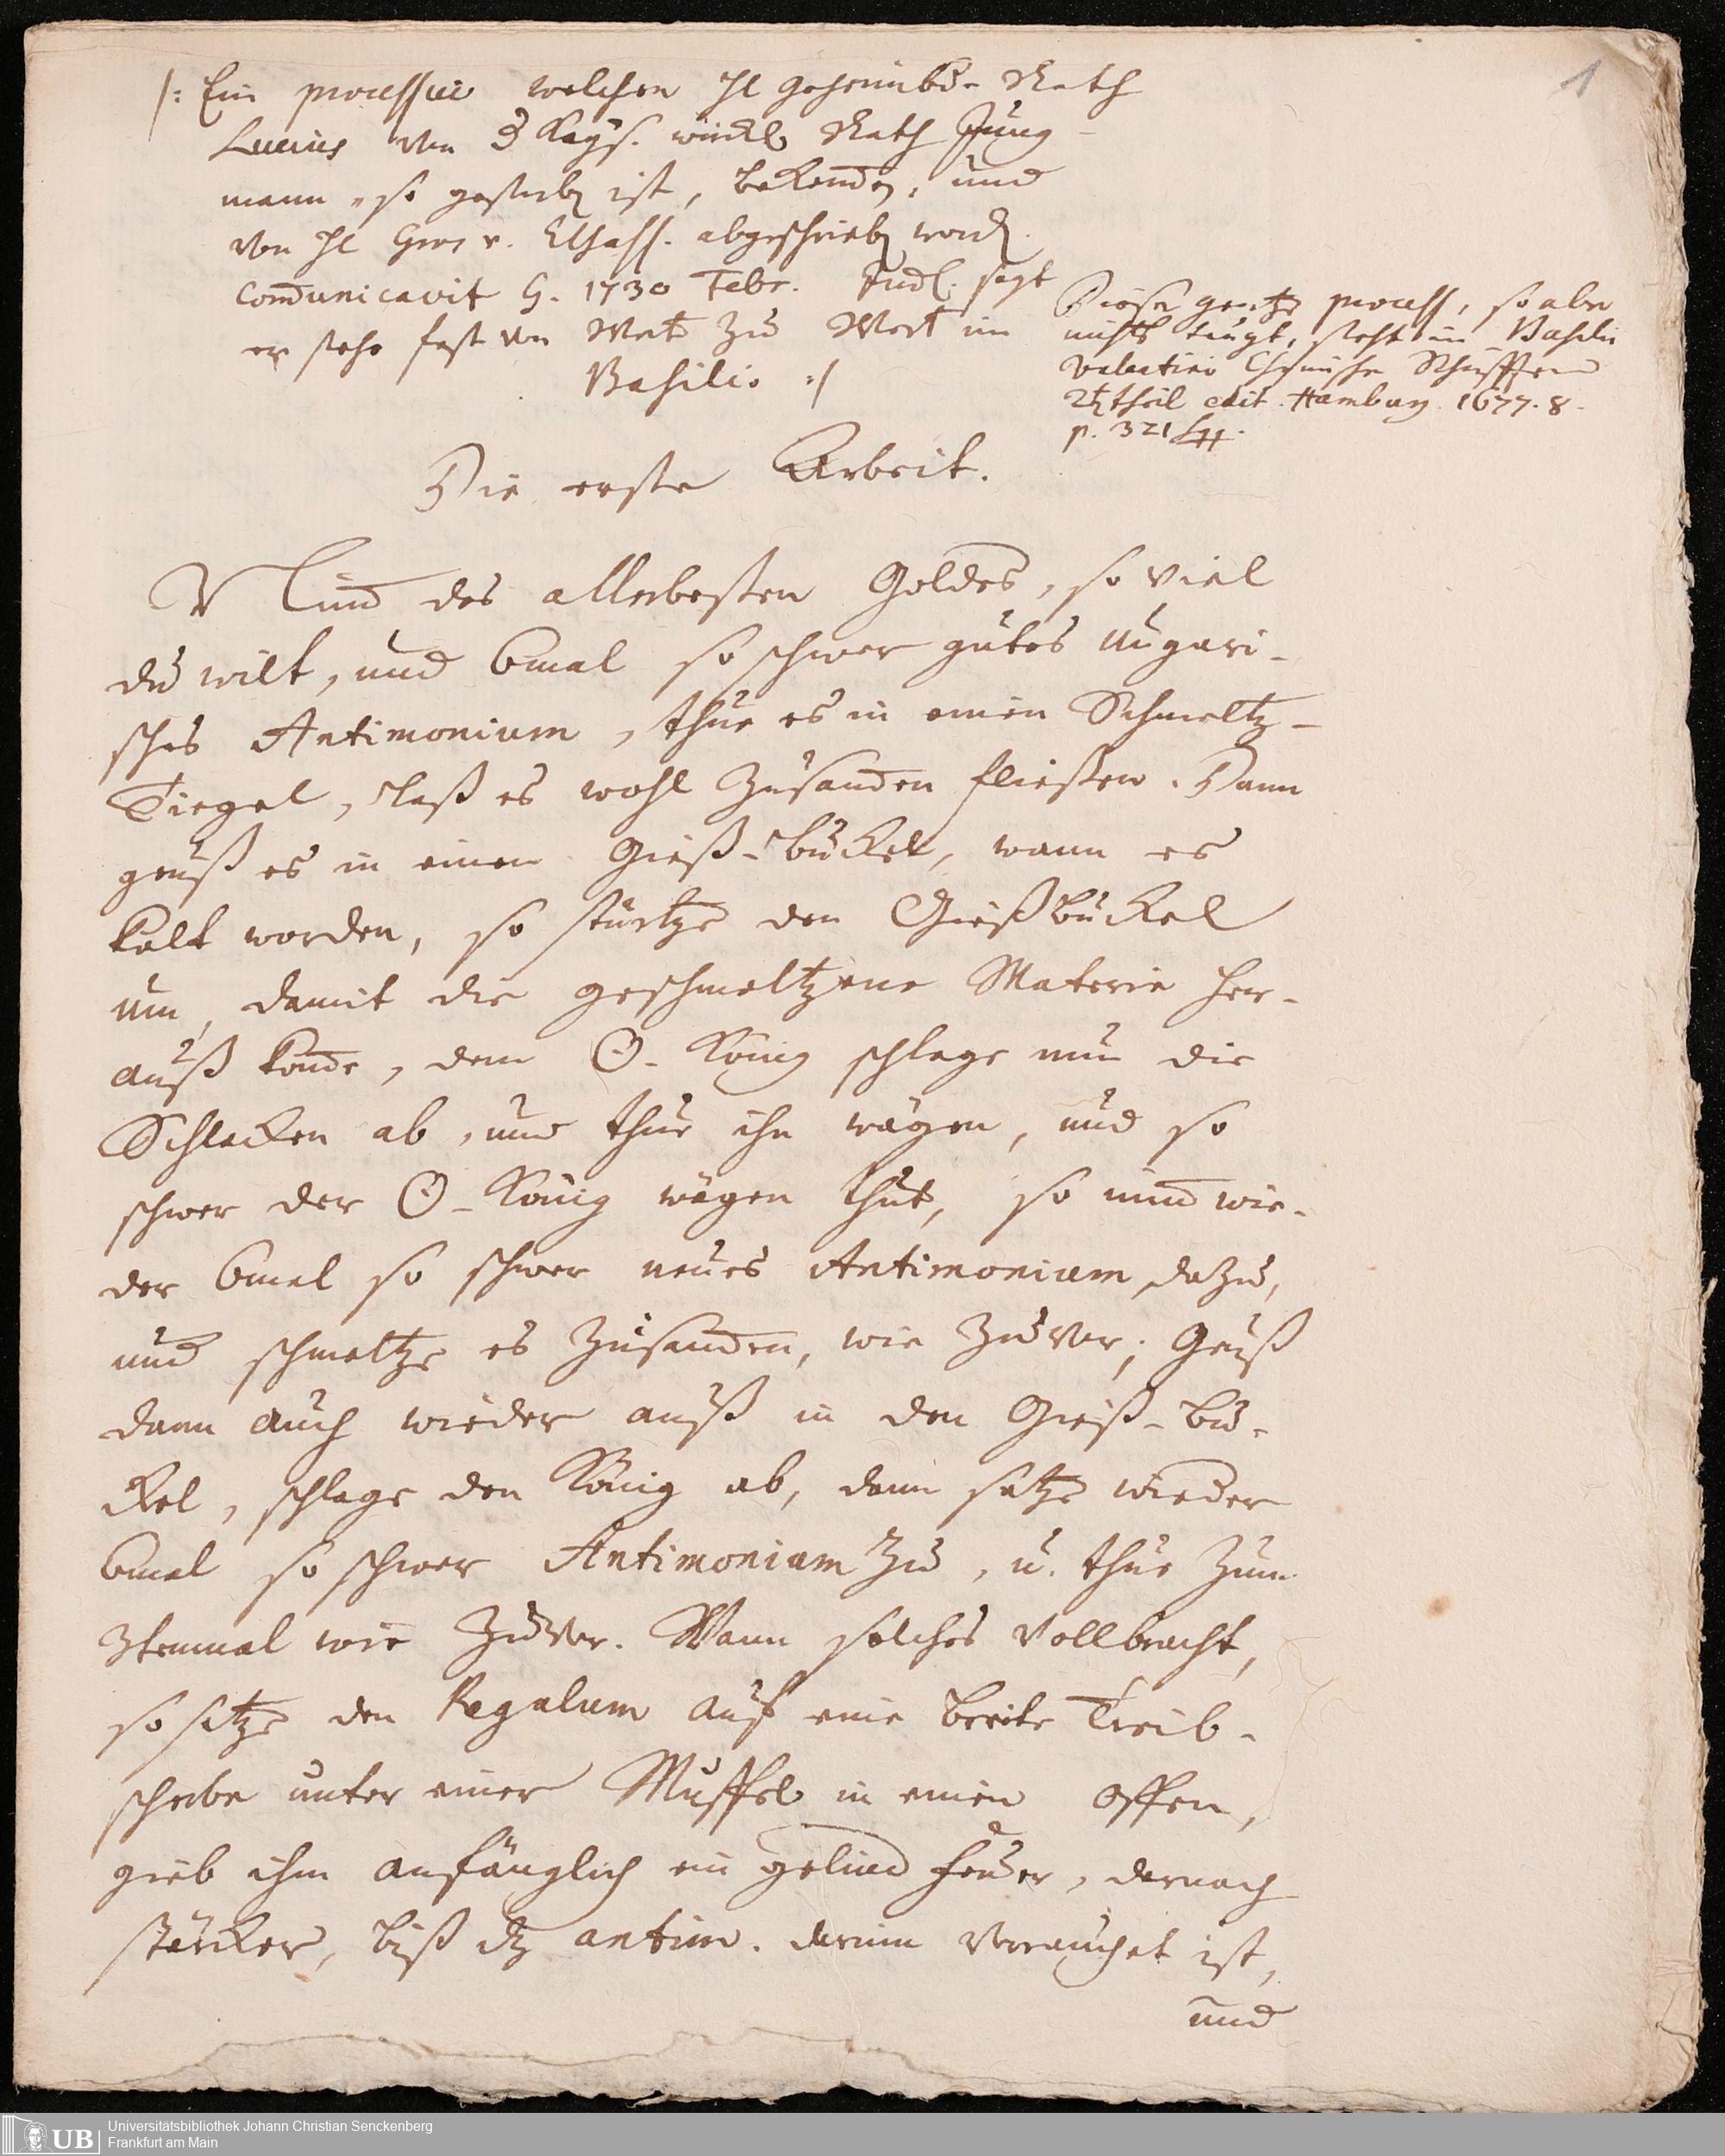 1
/: Ein processus welchen H. Geheimbde Rath
Lucius von d Kays. würckl. Rath Jung-
mann, so gestorb ist, bekomen, und
von H. v. Elsass. abgeschrieb word.
Comunicavit G. 1730 Febr. Jud. sagt
er stehe fast von Wort zu Wort im
Basilio :/
Dieser gantze process, so aber
nichts taugt, steht in Basilii
Valentini Chymische Schrifften
2t theil edit. Hamburg 1677. 8.
p. 321 sqq.
Die erste Arbeit.
Nim des allerbesten Goldes, so viel
du wilt, und 6mal so schwer gutes ungari-
sches Antimonium, thue es in einen Schmeltz-
Tiegel, laß es wohl zusamen fliessen. Dann
geuß es in einen Gieß-buckel, wann es
kalt worden, so stürtze den Gießbuckel
um, damit die geschmeltzene Materie her-
auß kome, dem ☉-König schlage nun die
Schlacken ab, und thue ihn wägen, und so
schwer der ☉-König wägen thut, so nim wie-
der 6mal so schwer neues Antimonium dazu,
und schmeltze es zusamen, wie zuvor, Geuß
dann auch wieder auß in den Gieß-bu-
ckel, schlage den König ab, dann setze wieder
6mal so schwer Antimonium zu, u. thue zum
3tenmal wie zuvor. Wann solches vollbracht,
so setze den Regulum auf eine breite Treib-
scherbe unter einer Muffel in einen Offen,
gieb ihm anfänglich ein gelind feuer, darnach
stärcker, biß dz antim. darinn verrauchet ist,
und
UB
Universitätsbibliothek Johann Christian Senckenberg
Frankfurt am Main